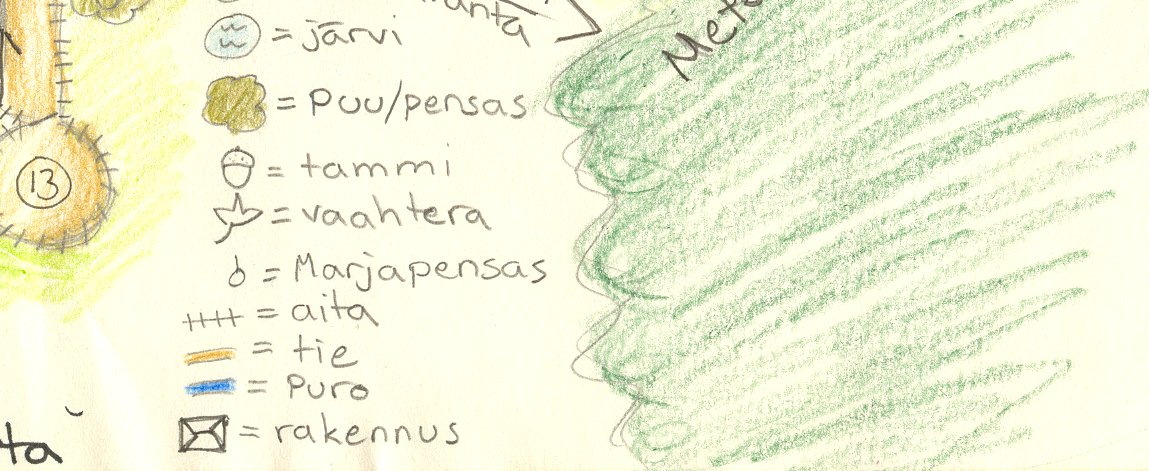 = järvi
= puu/pensas
= tammi
= vaahtera
= Marjapensas
= aita
= tie
= puro
= rakennus
13